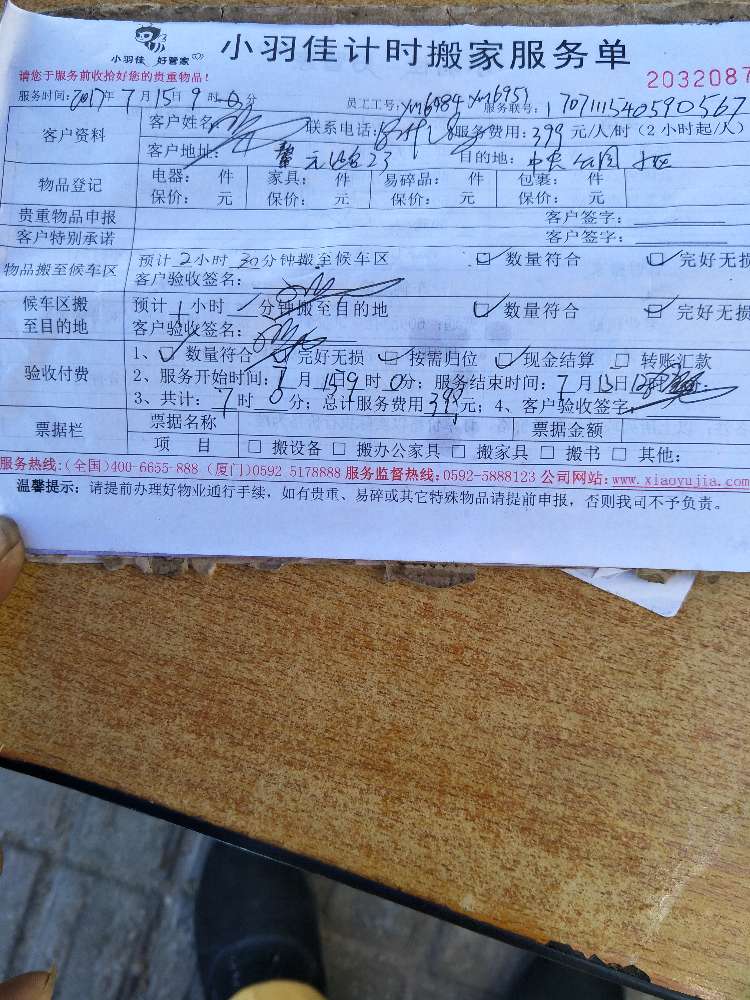 小羽佳 好管家
小羽佳计时搬家服务单
请您于服务前收拾好您的贵重物品！
2032087
服务时间：2017年7月15日9时0分 员工工号：ym6984 ym6951 服务联号：1707111540590567
客户资料
客户姓名： 联系电话： 服务费用：399元/人/时（2小时起/人）
客户地址： 23 目的地：中央公园
物品登记
电器： 件 家具： 件 易碎品： 件 包裹： 件
保价： 元 保价： 元 保价： 元 保价： 元
贵重物品申报 客户签字：
客户特别承诺 客户签字：
物品搬至候车区
预计2小时30分钟搬至候车区 数量符合 完好无损
客户验收签名：
候车区搬至目的地
预计1小时 分钟搬至目的地 数量符合 完好无损
客户验收签名：
验收付费
1、 数量符合 完好无损 按需归位 现金结算 转账汇款
2、服务开始时间： 月15日9时0分；服务结束时间：7月15日12
3、共计： 时0分；总计服务费用399元；4、客户验收签字：
票据栏
票据名称 票据金额
项 目 搬设备 搬办公家具 搬家具 搬书 其他：
服务热线：（全国）400-6655-888（厦门）0592 5178888 服务监督热线：0592-5888123 公司网站：www.xiaoyujia.com
温馨提示：请提前办理好物业通行手续，如有贵重、易碎或其它特殊物品请提前申报，否则我司不予负责。